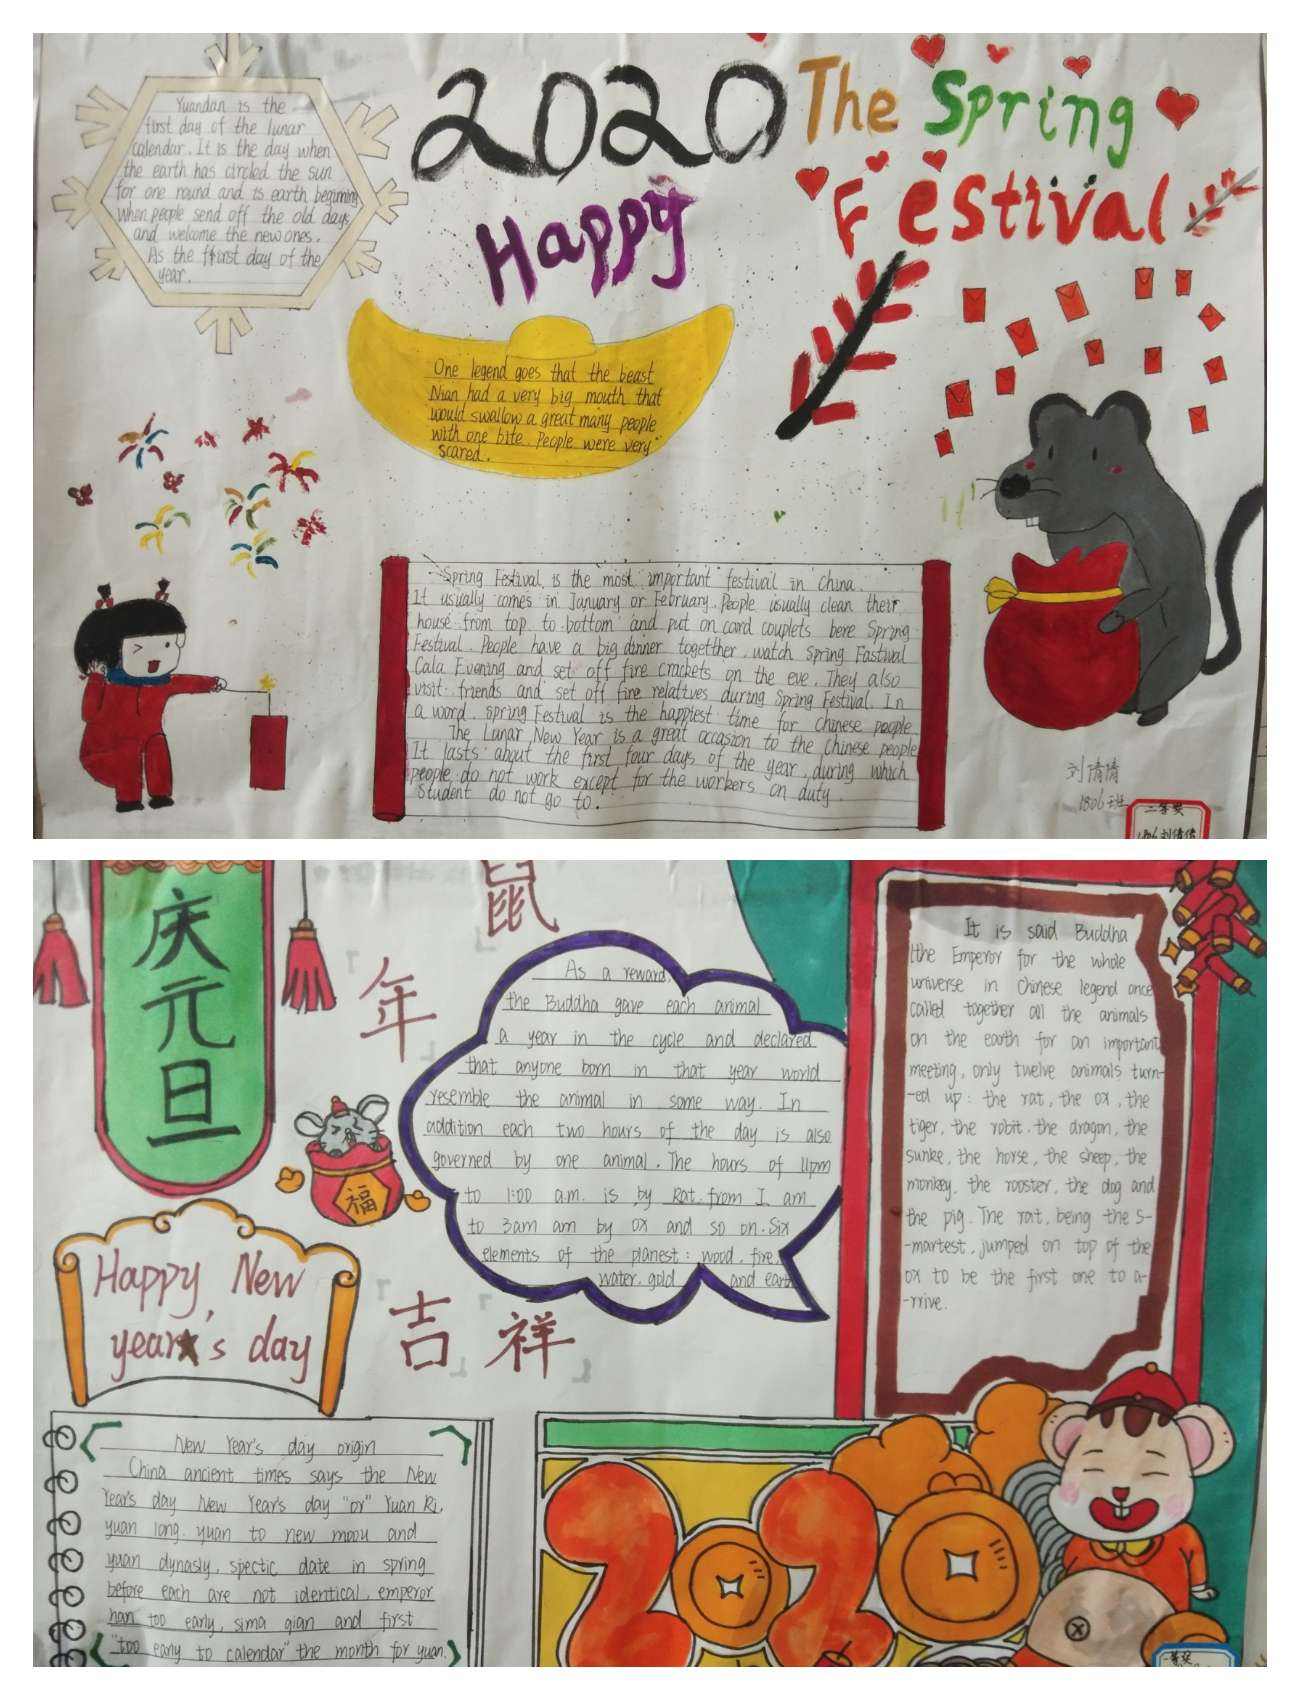 Yuandan is the
first day of the lunar
calendar. It is the day when
the earth has circled the sun
for one round and is earth beginning
when people send off the old days
and welcome the new ones.
As the first day of the
year.
2020 The Spring
Happy Festival
One legend goes that the beast
Nian had a very big mouth that
would swallow a great many people
with one bite. People were very
scared.
Spring Festival is the most important festival in China.
It usually comes in January or February. People usually clean their
house from top to bottom and put on card couplets bere Spring
Festival. People have a big dinner together watch Spring Fastival
Gala Evening and set off fire crackets on the eve. They also
visit friends and set off fire relatives during Spring Festival. In
a word. Spring Festival is the happiest time for Chinese people.
The Lunar New Year is a great occasion to the Chinese people
It lasts about the first four days of the year, during which
people do not work except for the workers on duty.
Student do not go to.
刘倩倩
1806班
二等奖
1806刘倩倩
庆元旦
鼠
年
吉祥
福
Happy New
year's day
As a reward,
the Buddha gave each animal
a year in the cycle and declared
that anyone born in that year world
resemble the animal in some way. In
addition each two hours of the day is also
governed by one animal. The hours of 11pm
to 1:00 a.m. is by Rat. from I am
to 3am am by ox and so on. Six
elements of the planest: wood, fire,
water, gold and earth
It is said Buddha
the Emperor for the whole
universe in Chinese legend once
called together all the animals
on the earth for an important
meeting, only twelve animals turn-
-ed up: the rat, the ox, the
tiger, the robit. the dragon, the
sunke, the horse, the sheep, the
monkey, the rooster, the dog and
the pig. The rat, being the s-
-martest, jumped on top of the
ox to be the first one to a-
-rrive.
New Year's day origin
China ancient times says the New
Year's day New Year's day "or" Yuan Ri,
yuan long. yuan to new moou and
yuan dynasly, spectic date in spring
before each are not identical, emperor
han too early, sima qian and first
"too eany to calendar" the month for yuan.
2020
一等奖